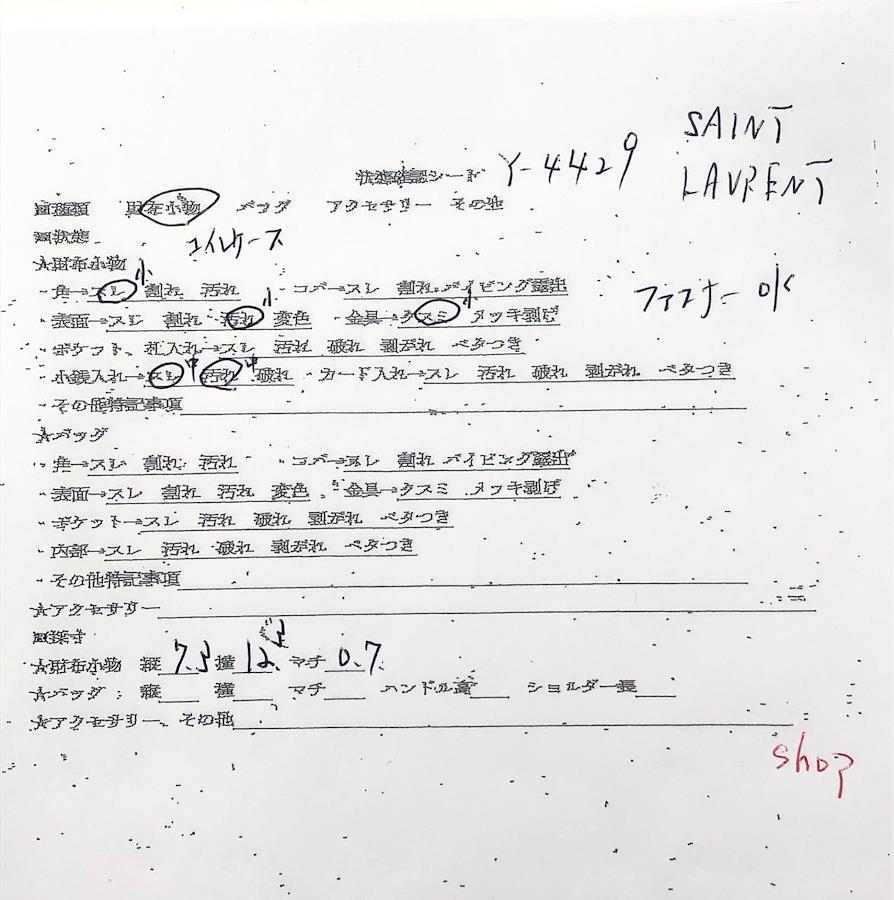 SAINT
LAURENT
状態確認シート Y-4429
■種類 財布小物 バッグ アクセサリー その他
■状態 コインケース
★財布小物
・角→スレ 小 割れ 汚れ ・コバ→スレ 割れ パイピング露出
ファスナー OK
・表面→スレ 割れ 汚れ 小 変色 ・金具→クスミ 小 メッキ剥げ
・ポケット、札入れ→スレ 汚れ 破れ 剥がれ ベタつき
・小銭入れ→スレ 中 汚れ 中 破れ ・カード入れ→スレ 汚れ 破れ 剥がれ ベタつき
・その他特記事項
★バッグ
・角→スレ 割れ 汚れ ・コバ→スレ 割れ パイピング露出
・表面→スレ 割れ 汚れ 変色 ・金具→クスミ メッキ剥げ
・ポケット→スレ 汚れ 破れ 剥がれ ベタつき
・内部→スレ 汚れ 破れ 剥がれ ベタつき
・その他特記事項
★アクセサリー
■採寸
★財布小物 縦 7.5 横 12. マチ 0.7
★バッグ：縦 横 マチ ハンドル高 ショルダー長
★アクセサリー、その他
shop